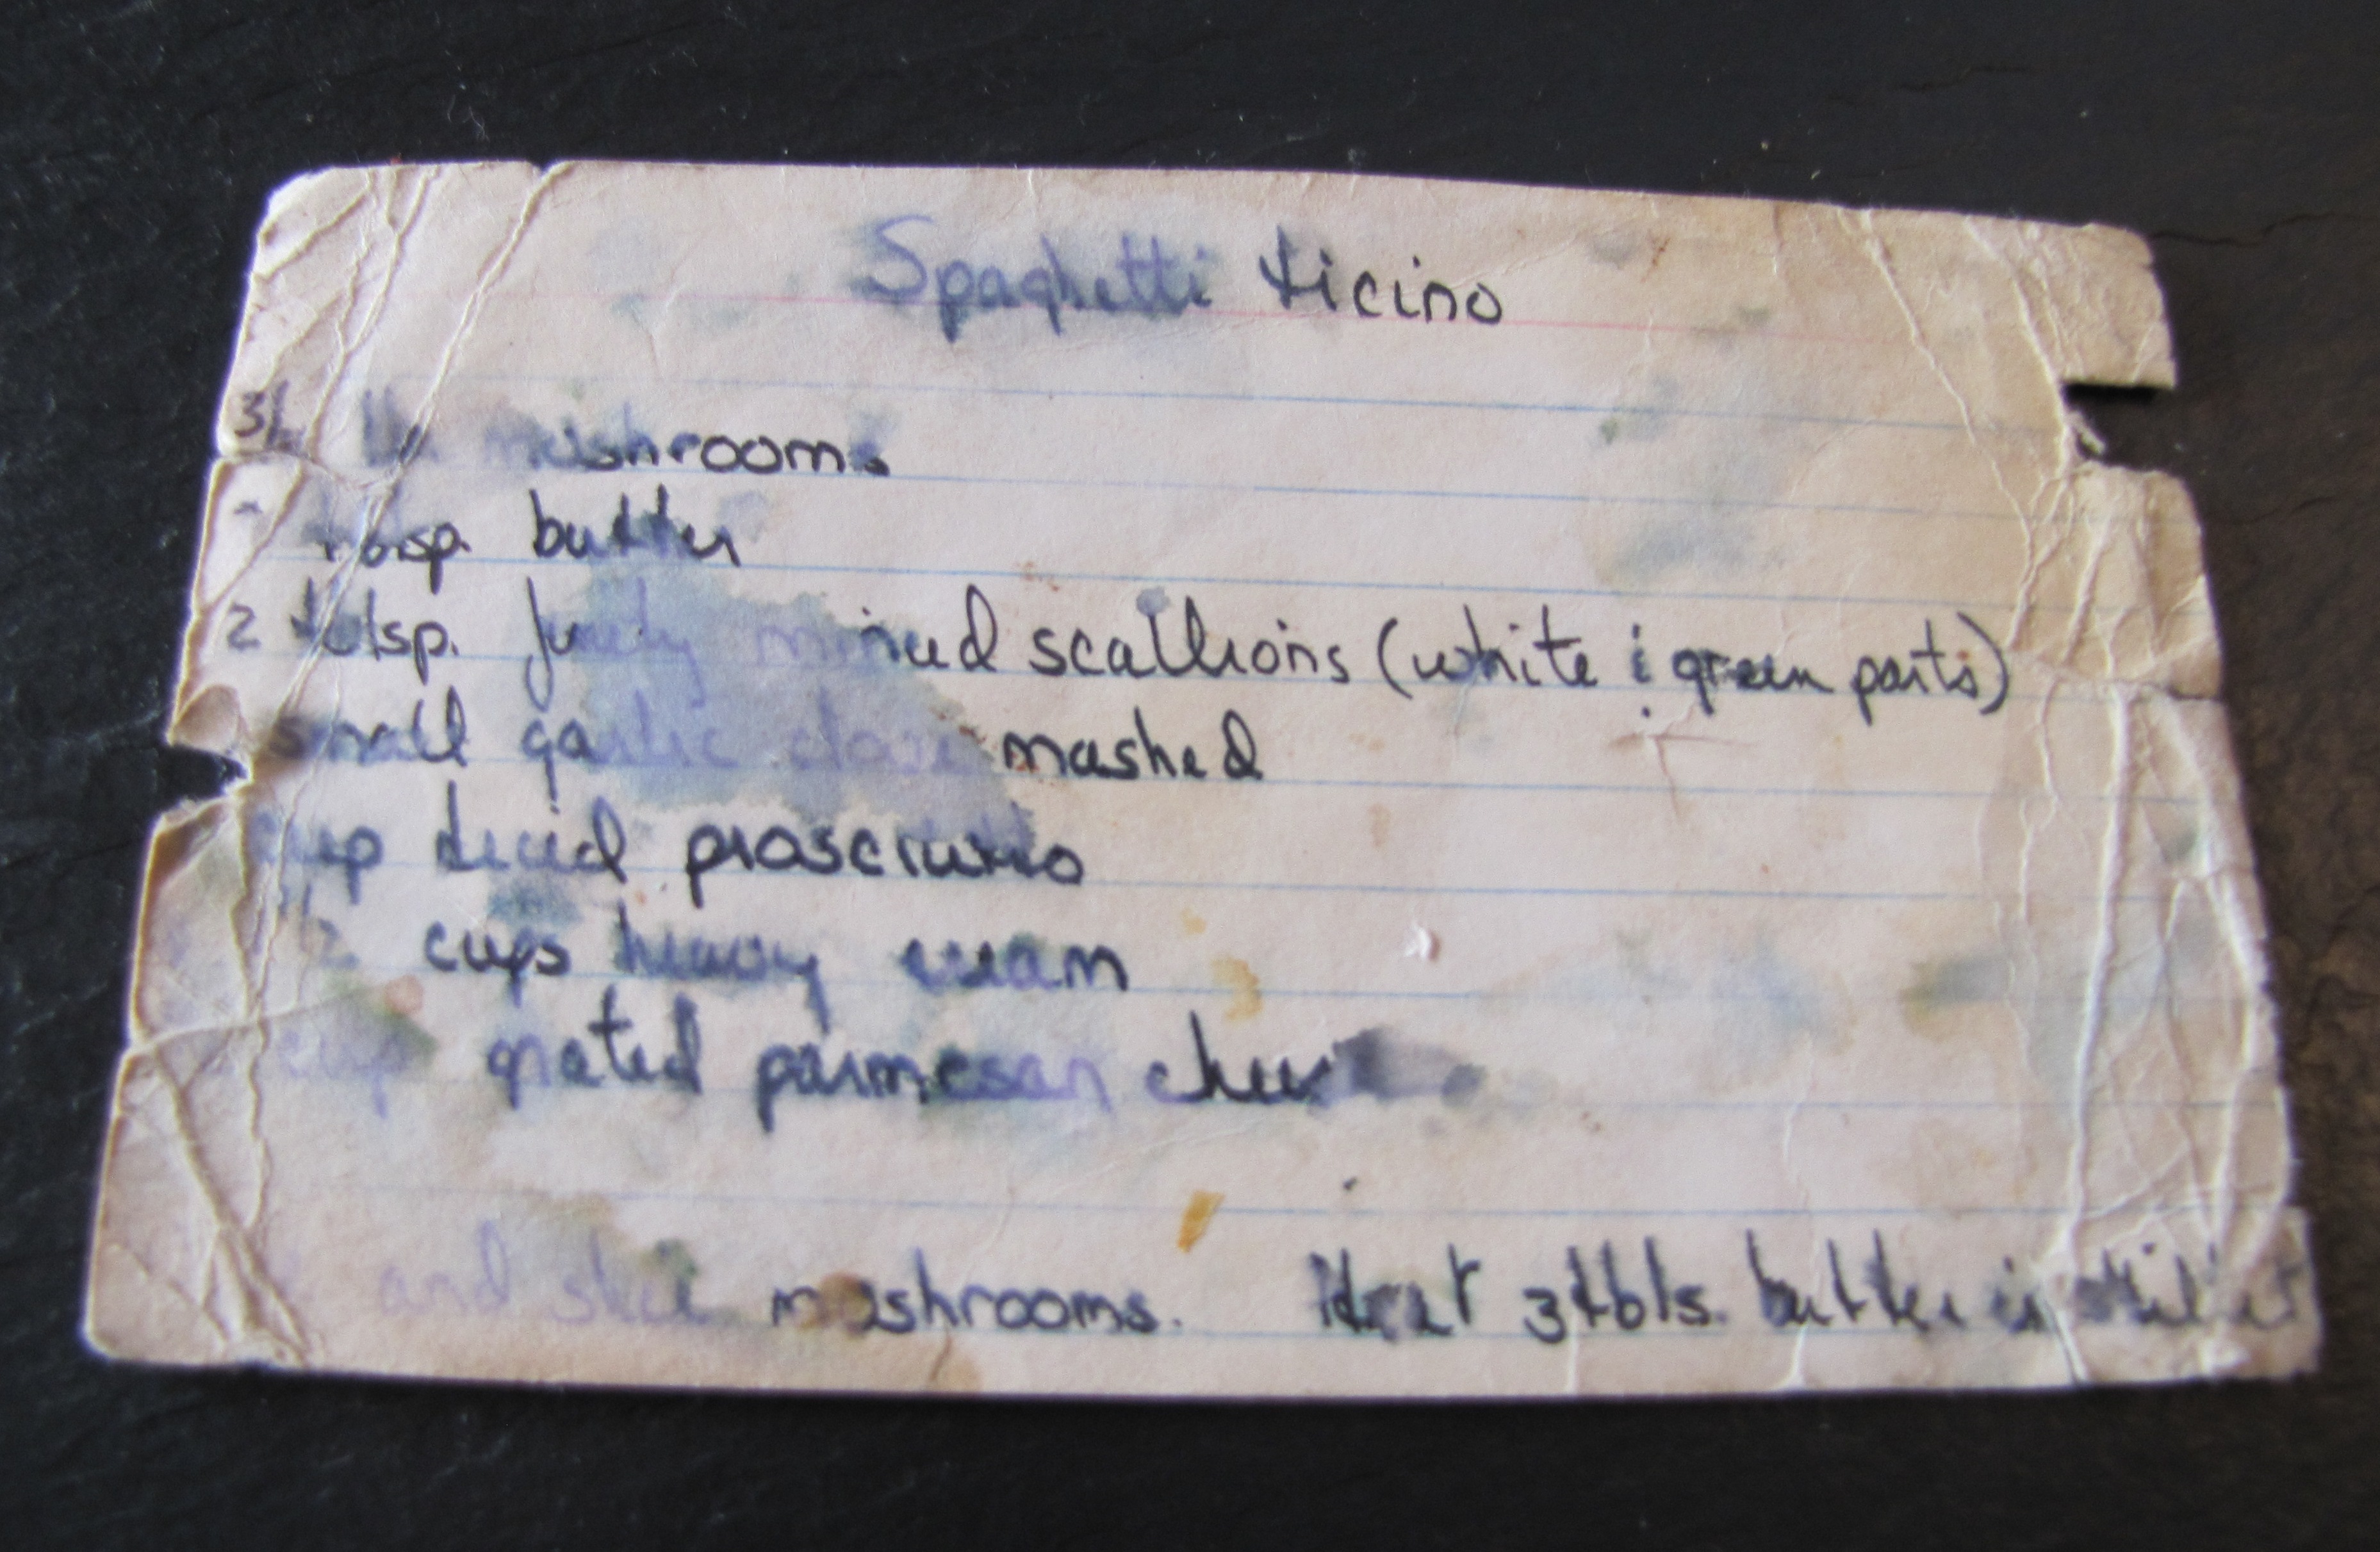 Spaghetti ticino
mushrooms
tblsp. butter
2 tblsp. finely minced scallions (white & green parts)
small garlic clove mashed
cup diced prosciutto
1/2 cups heavy cream
cup grated parmesan cheese
and slice mushrooms. Heat 3 tbls. butter in skillet